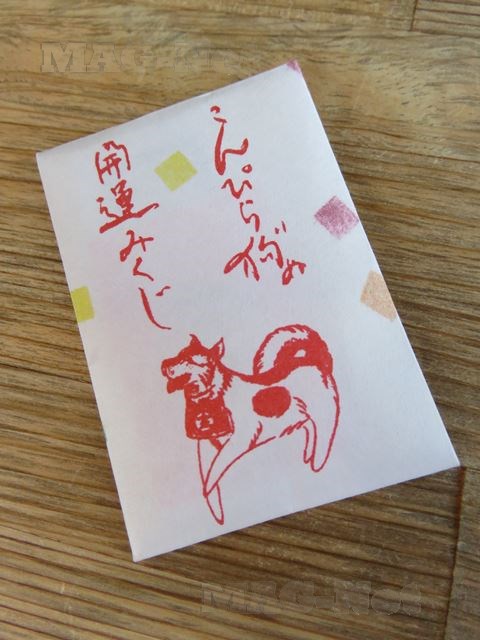 こんぴら狗
開運みくじ